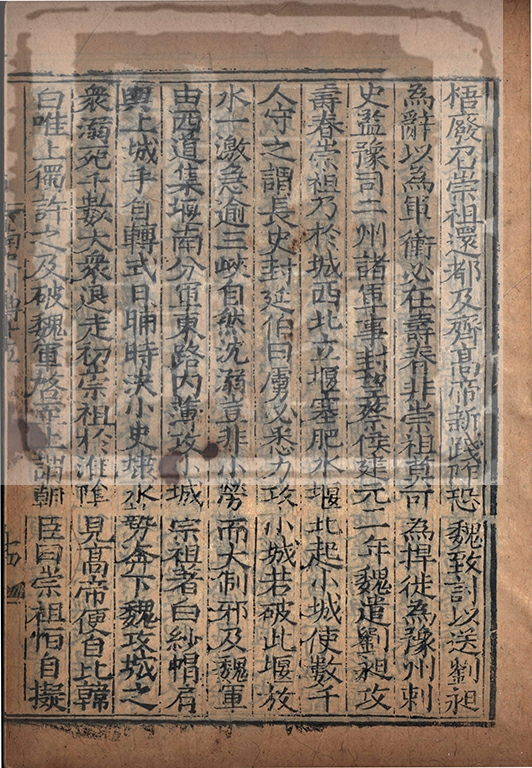 梧廢召崇祖還都及齊高帝新踐阼恐魏致討以送劉昶
為辭以為軍衝必在壽春非崇祖莫可為捍徙為豫州刺
史監豫司二州諸軍事封望蔡侯建元二年魏遣劉昶攻
壽春崇祖乃於城西北立堰塞肥水堰北起小城使數千
人守之謂長史封延伯曰虜必悉力攻小城若破此堰放
水一激急逾三峽自然沉溺豈非小勞而大制邪及魏軍
由西道集堰南分軍東路内薄攻小城宗祖著白紗帽肩
輿上城手自轉式日晡時決小史埭水勢奔下魏攻城之
衆溺死千數大衆退走初宗祖於淮陰見高帝便自比韓
白唯上獨許之及破魏軍啓至上謂朝臣曰崇祖恒自擬